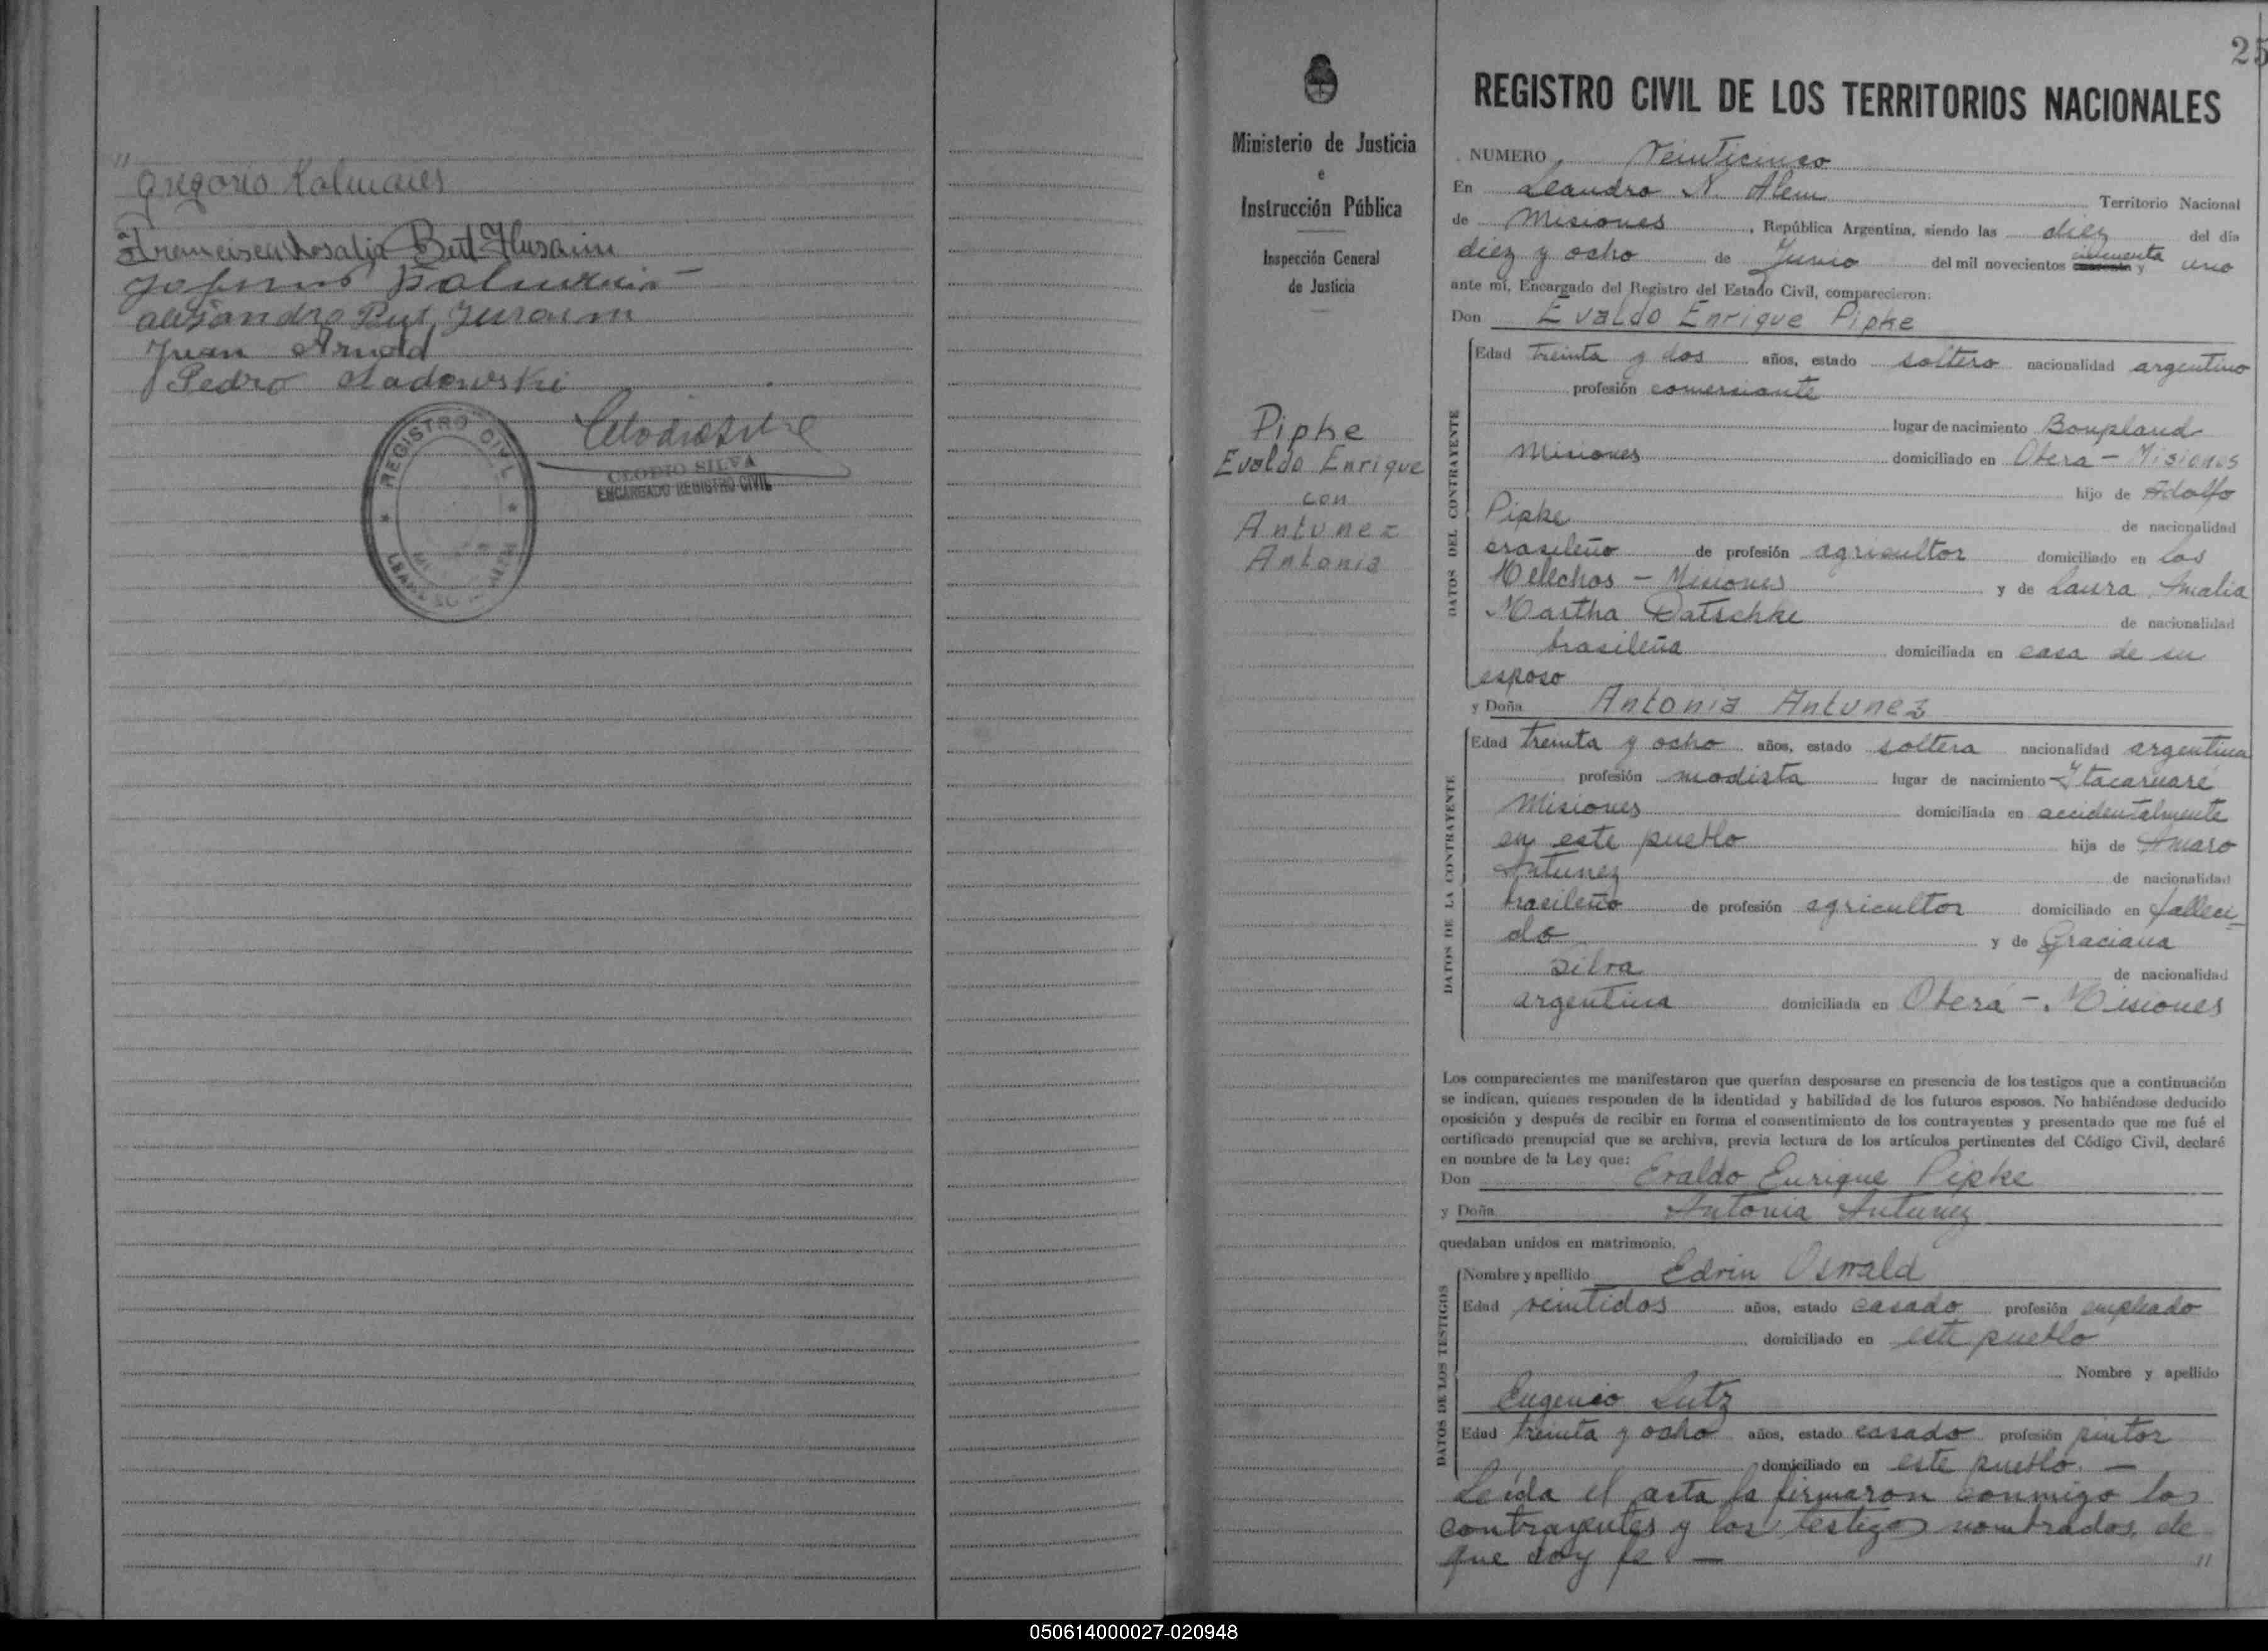 "
Gregorio Kalmaver
Francisca Rosalia But Husaim
Alejandro But Jusaim
Juan Arnold
Pedro Sadowski
REGISTRO CIVIL
CLODIO SILVA
ENCARGADO REGISTRO CIVIL
25
Ministerio de Justicia
e
Instrucción Pública
Inspección General
de Justicia
Pipke
Evaldo Enrique
con
Antunez
Antonia
REGISTRO CIVIL DE LOS TERRITORIOS NACIONALES
NUMERO Veinticinco
En Leandro N. Alem Territorio Nacional
de Misiones, República Argentina, siendo las diez del día
diez y ocho de Junio del mil novecientos cincuenta y uno
ante mí, Encargado del Registro del Estado Civil, comparecieron:
Don Evaldo Enrique Pipke
DATOS DEL CONTRAYENTE
Edad treinta y dos años, estado soltero nacionalidad argentino
profesión comersiante
lugar de nacimiento Bonpland
Misiones domiciliado en Oberá - Misiones
hijo de Adolfo
Pipke de nacionalidad
brasileño de profesión agricultor domiciliado en los
Helechos - Misiones y de Laura Amalia
Martha Datschke de nacionalidad
brasileña domiciliada en casa de su
esposo
y Doña Antonia Antunez
DATOS DE LA CONTRAYENTE
Edad treinta y ocho años, estado soltera nacionalidad argentina
profesión modista lugar de nacimiento Itacaruaré
Misiones domiciliada en accidentalmente
en este pueblo hija de Amaro
Antunez de nacionalidad
brasileño de profesión agricultor domiciliado en falleci-
do y de Graciana
Silva de nacionalidad
argentina domiciliada en Oberá - Misiones
Los comparecientes me manifestaron que querían desposarse en presencia de los testigos que a continuación
se indican, quienes responden de la identidad y habilidad de los futuros esposos. No habiéndose deducido
oposición y después de recibir en forma el consentimiento de los contrayentes y presentado que me fué el
certificado prenupcial que se archiva, previa lectura de los artículos pertinentes del Código Civil, declaré
en nombre de la Ley que:
Don Evaldo Enrique Pipke
y Doña Antonia Antunez
quedaban unidos en matrimonio.
DATOS DE LOS TESTIGOS
Nombre y apellido Edvin Oswald
Edad veintidos años, estado casado profesión empleado
domiciliado en este pueblo
Nombre y apellido
Eugenio Lutz
Edad treinta y ocho años, estado casado profesión pintor
domiciliado en este pueblo. -
Leída el acta la firmaron conmigo los
contrayentes y los testigos nombrados, de
que doy fe. - "
050614000027-020948